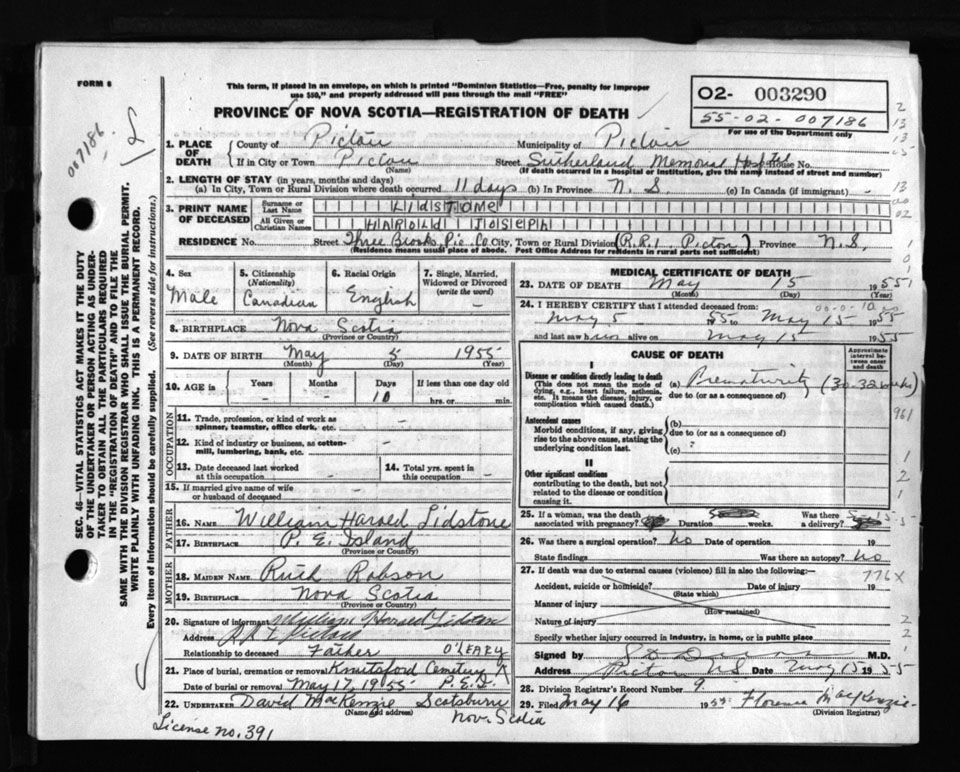 FORM 6
This form, if placed in an envelope, on which is printed "Dominion Statistics—Free, penalty for improper
use $50," and properly addressed will pass through the mail "FREE"
PROVINCE OF NOVA SCOTIA—REGISTRATION OF DEATH
02- 003290
55-02-007186
For use of the Department only
007186
1. PLACE OF DEATH County of Pictou Municipality of Pictou
If in City or Town Pictou Street Sutherland Memorial Hospital House No.
(Name) (If death occurred in a hospital or institution, give the name instead of street and number)
2. LENGTH OF STAY (in years, months and days)
(a) In City, Town or Rural Division where death occurred 11 days (b) In Province N.S. (c) In Canada (if immigrant) -
3. PRINT NAME OF DECEASED Surname or Last Name LIDSTONE
All Given or Christian Names HAROLD JOSEPH
RESIDENCE No. Street Three Brooks Pic. Co. City, Town or Rural Division (R.R.1 Pictou) Province N.S.
(Residence means usual place of abode. Post Office Address for residents in rural parts not sufficient)
4. Sex Male
5. Citizenship (Nationality) Canadian
6. Racial Origin English
7. Single, Married, Widowed or Divorced (write the word) -
8. BIRTHPLACE Nova Scotia
(Province or Country)
9. DATE OF BIRTH May 5 1955
(Month) (Day) (Year)
10. AGE in Years - Months - Days 10 If less than one day old
hrs. or min.
OCCUPATION
11. Trade, profession, or kind of work as spinner, teamster, office clerk, etc. -
12. Kind of industry or business, as cotten-mill, lumbering, bank, etc. -
13. Date deceased last worked at this occupation -
14. Total yrs. spent in this occupation -
15. If married give name of wife or husband of deceased -
FATHER
16. Name William Harold Lidstone
17. Birthplace P. E. Island
(Province or Country)
MOTHER
18. Maiden Name Ruth Robson
19. Birthplace Nova Scotia
(Province or Country)
20. Signature of informant William Harold Lidstone
Address R.R.1 Pictou
Relationship to deceased Father O'LEARY
21. Place of burial, cremation or removal Knutsford Cemetery
Date of burial or removal May 17, 1955 P.E.I.
22. UNDERTAKER David MacKenzie Scotsburn
(Name and address) Nov. Scotia
License no. 391
MEDICAL CERTIFICATE OF DEATH
23. DATE OF DEATH May 15 1955
(Month) (Day) (Year)
24. I HEREBY CERTIFY that I attended deceased from:
May 5 1955 to May 15 1955
and last saw him alive on May 15 1955
CAUSE OF DEATH
Approximate interval between onset and death
I
Disease or condition directly leading to death
(This does not mean the mode of dying, e.g., heart failure, asthenia, etc. It means the disease, injury, or complication which caused death.)
(a) Prematurity (30-32 weeks)
due to (or as a consequence of)
Antecedent causes
Morbid conditions, if any, giving rise to the above cause, stating the underlying condition last.
(b)
due to (or as a consequence of)
(c)
II
Other significant conditions
contributing to the death, but not related to the disease or condition causing it.
961
25. If a woman, was the death associated with pregnancy? Duration weeks. Was there a delivery?
26. Was there a surgical operation? no Date of operation 19
State findings Was there an autopsy? No
27. If death was due to external causes (violence) fill in also the following:—
776X
Accident, suicide or homicide? Date of injury 19
(State which)
Manner of injury
(How sustained)
Nature of injury
Specify whether injury occurred in industry, in home, or in public place
Signed by M.D.
Address Pictou N.S. Date May 1955
28. Division Registrar's Record Number 9.
29. Filed May 16 1955 Florence MacKenzie
(Division Registrar)
SEC. 46—VITAL STATISTICS ACT MAKES IT THE DUTY
OF THE UNDERTAKER OR PERSON ACTING AS UNDER-
TAKER TO OBTAIN ALL THE PARTICULARS REQUIRED
IN THE "REGISTRATION OF DEATH" AND TO FILE THE
SAME WITH THE DIVISION REGISTRAR WHO SHALL ISSUE THE BURIAL PERMIT.
WRITE PLAINLY WITH UNFADING INK. THIS IS A PERMANENT RECORD.
Every item of Information should be carefully supplied. (See reverse side for instructions.)